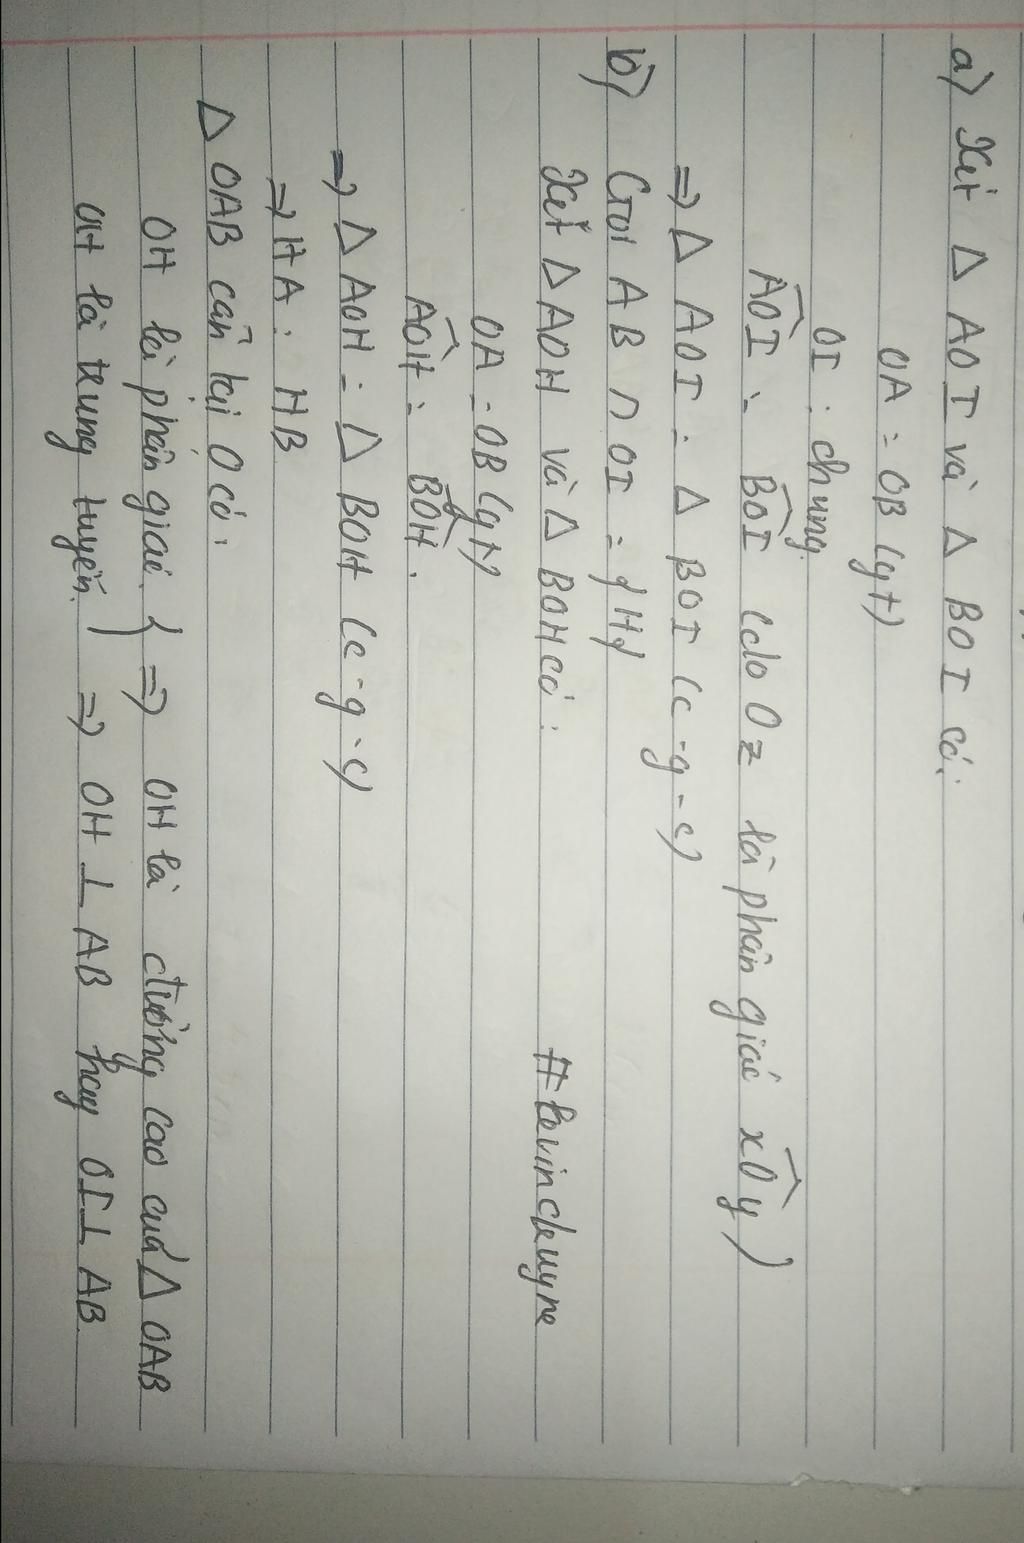 a) Xét Δ AOI và Δ BOI có:
OA = OB (gt)
OI : chung
AOI = BOI (do Oz là phân giác xOy)
=> Δ AOI = Δ BOI (c-g-c)
b) Gọi AB ∩ OI = {H}
Xét Δ AOH và Δ BOH có:
#levincleuyne
OA = OB (gt)
AOH = BOH.
=> Δ AOH = Δ BOH (c-g-c)
=> HA = HB
Δ OAB cân tại O có:
OH là phân giác } => OH là đường cao của Δ OAB
OH là trung tuyến. } => OH ⊥ AB hay OI ⊥ AB.